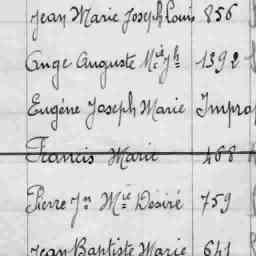 Jean Marie Joseph Louis 856
Ange Auguste Mie Jh 1392
Eugène Joseph Marie Impro
Francis Marie 468
Pierre Jn Mie Désiré 759
Jean Baptiste Marie 641